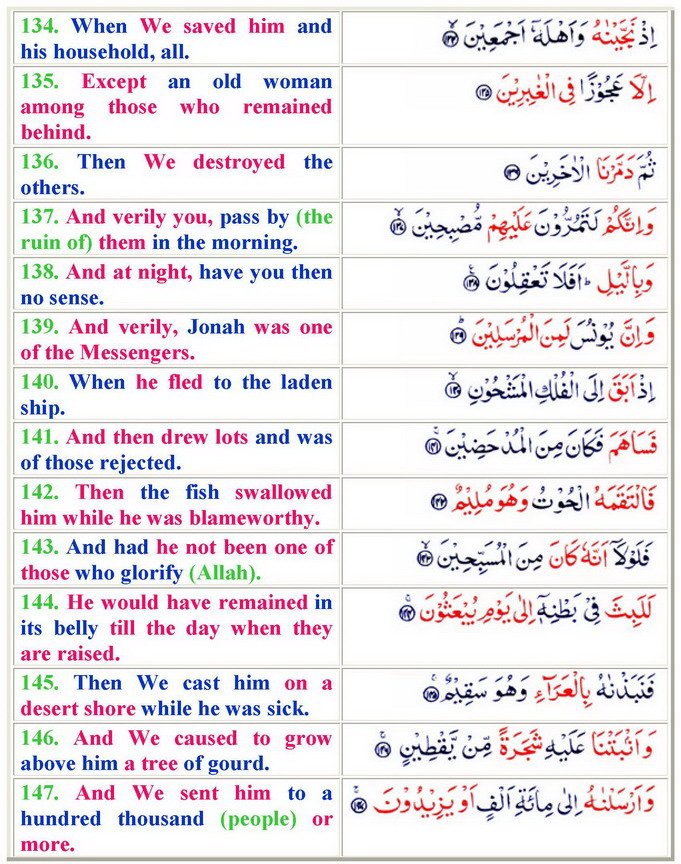 134. When We saved him and
his household, all.
اِذْ نَجَّيْنٰهُ وَاَهْلَهٗٓ اَجْمَعِيْنَ ﴿۱۳۴﴾
135. Except an old woman
among those who remained
behind.
اِلَّا عَجُوْزًا فِى الْغٰبِرِيْنَ ﴿۱۳۵﴾
136. Then We destroyed the
others.
ثُمَّ دَمَّرْنَا الْاٰخَرِيْنَ ﴿۱۳۶﴾
137. And verily you, pass by (the
ruin of) them in the morning.
وَاِنَّكُمْ لَتَمُرُّوْنَ عَلَيْهِمْ مُّصْبِحِيْنَ ﴿۱۳۷﴾
138. And at night, have you then
no sense.
وَبِالَّيْلِ ؕ اَفَلَا تَعْقِلُوْنَ ﴿۱۳۸﴾
139. And verily, Jonah was one
of the Messengers.
وَاِنَّ يُوْنُسَ لَمِنَ الْمُرْسَلِيْنَ ﴿۱۳۹﴾
140. When he fled to the laden
ship.
اِذْ اَبَقَ اِلَى الْفُلْكِ الْمَشْحُوْنِ ﴿۱۴۰﴾
141. And then drew lots and was
of those rejected.
فَسَاهَمَ فَكَانَ مِنَ الْمُدْحَضِيْنَ ﴿۱۴۱﴾
142. Then the fish swallowed
him while he was blameworthy.
فَالْتَقَمَهُ الْحُوْتُ وَهُوَ مُلِيْمٌ ﴿۱۴۲﴾
143. And had he not been one of
those who glorify (Allah).
فَلَوْلَاۤ اَنَّهٗ كَانَ مِنَ الْمُسَبِّحِيْنَ ﴿۱۴۳﴾
144. He would have remained in
its belly till the day when they
are raised.
لَلَبِثَ فِىْ بَطْنِهٖۤ اِلٰى يَوْمِ يُبْعَثُوْنَ ﴿۱۴۴﴾
145. Then We cast him on a
desert shore while he was sick.
فَنَبَذْنٰهُ بِالْعَرَآءِ وَهُوَ سَقِيْمٌ ﴿۱۴۵﴾
146. And We caused to grow
above him a tree of gourd.
وَاَنْۢبَتْنَا عَلَيْهِ شَجَرَةً مِّنْ يَّقْطِيْنٍ ﴿۱۴۶﴾
147. And We sent him to a
hundred thousand (people) or
more.
وَاَرْسَلْنٰهُ اِلٰى مِائَةِ اَلْفٍ اَوْ يَزِيْدُوْنَ ﴿۱۴۷﴾